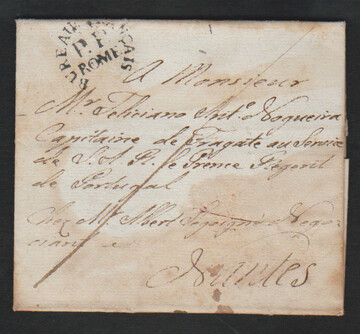 BUREAU FRANÇAIS
P. P.
ROME
A Monsieur
Mr. Feliciano Ant.o Nogueira
Capitaine de Fragate au Service
de S. A. R. le Prence Régent
de Portugal
Chez Mr. Albert Nego-
ciant
Nantes